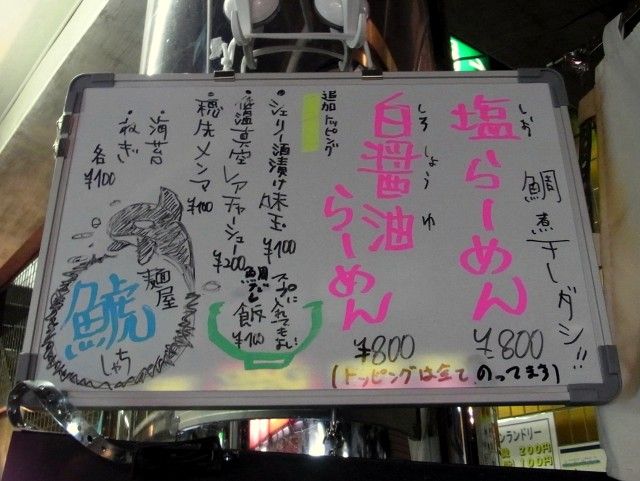 鯛煮干しダシ!!
しお
塩らーめん
¥800
しろしょうゆ
白醤油
らーめん
¥800
(トッピングは全てのってます)
追加トッピング
・シェリー酒漬け味玉 ¥100
・低温真空レアチャーシュー ¥200
・穂先メンマ ¥100
・海苔
・ねぎ
各¥100
スープに入れてもよし
鯛だし飯
¥100
麺屋
鯱
しゃち
ンランドリー
200円
100円